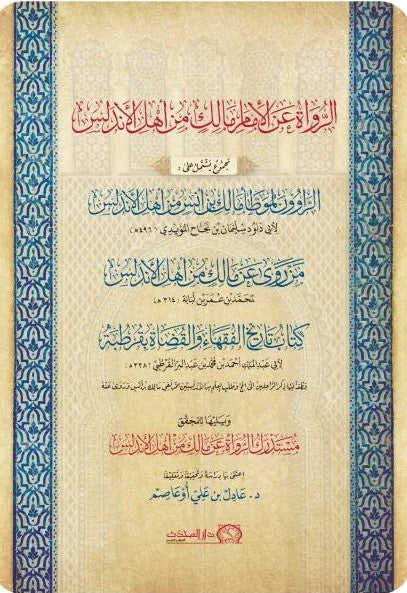 الرُّوَاةُ عَنِ الْإِمَامِ مَالِكٍ مِنْ أَهْلِ الْأَنْدَلُسِ
مجموع يشتمل على :
الرَّاوُونَ لِمُوَطَّأِ مَالِكِ بْنِ أَنَسٍ مِنْ أَهْلِ الْأَنْدَلُسِ
لأبي داود سليمان بن نجاح المؤيدي (٤٩٦هـ)
مَنْ رَوَى عَنْ مَالِكٍ مِنْ أَهْلِ الْأَنْدَلُسِ
لمحمد بن عمر بن لبابة (٣١٤هـ)
كِتَابُ تَارِيخِ الْفُقَهَاءِ وَالْقُضَاةِ بِقُرْطُبَةَ
لأبي عبد الملك أحمد بن محمد بن عبد البر القرطبي (٣٣٨هـ)
ويليها للمحقق
مُسْتَدْرَكُ الرُّوَاةِ عَنْ مَالِكٍ مِنْ أَهْلِ الْأَنْدَلُسِ
اعتنى بها دراسة وتحقيقا وتعليقا
د. عادل بن علي أوعاصم
دار المحدث